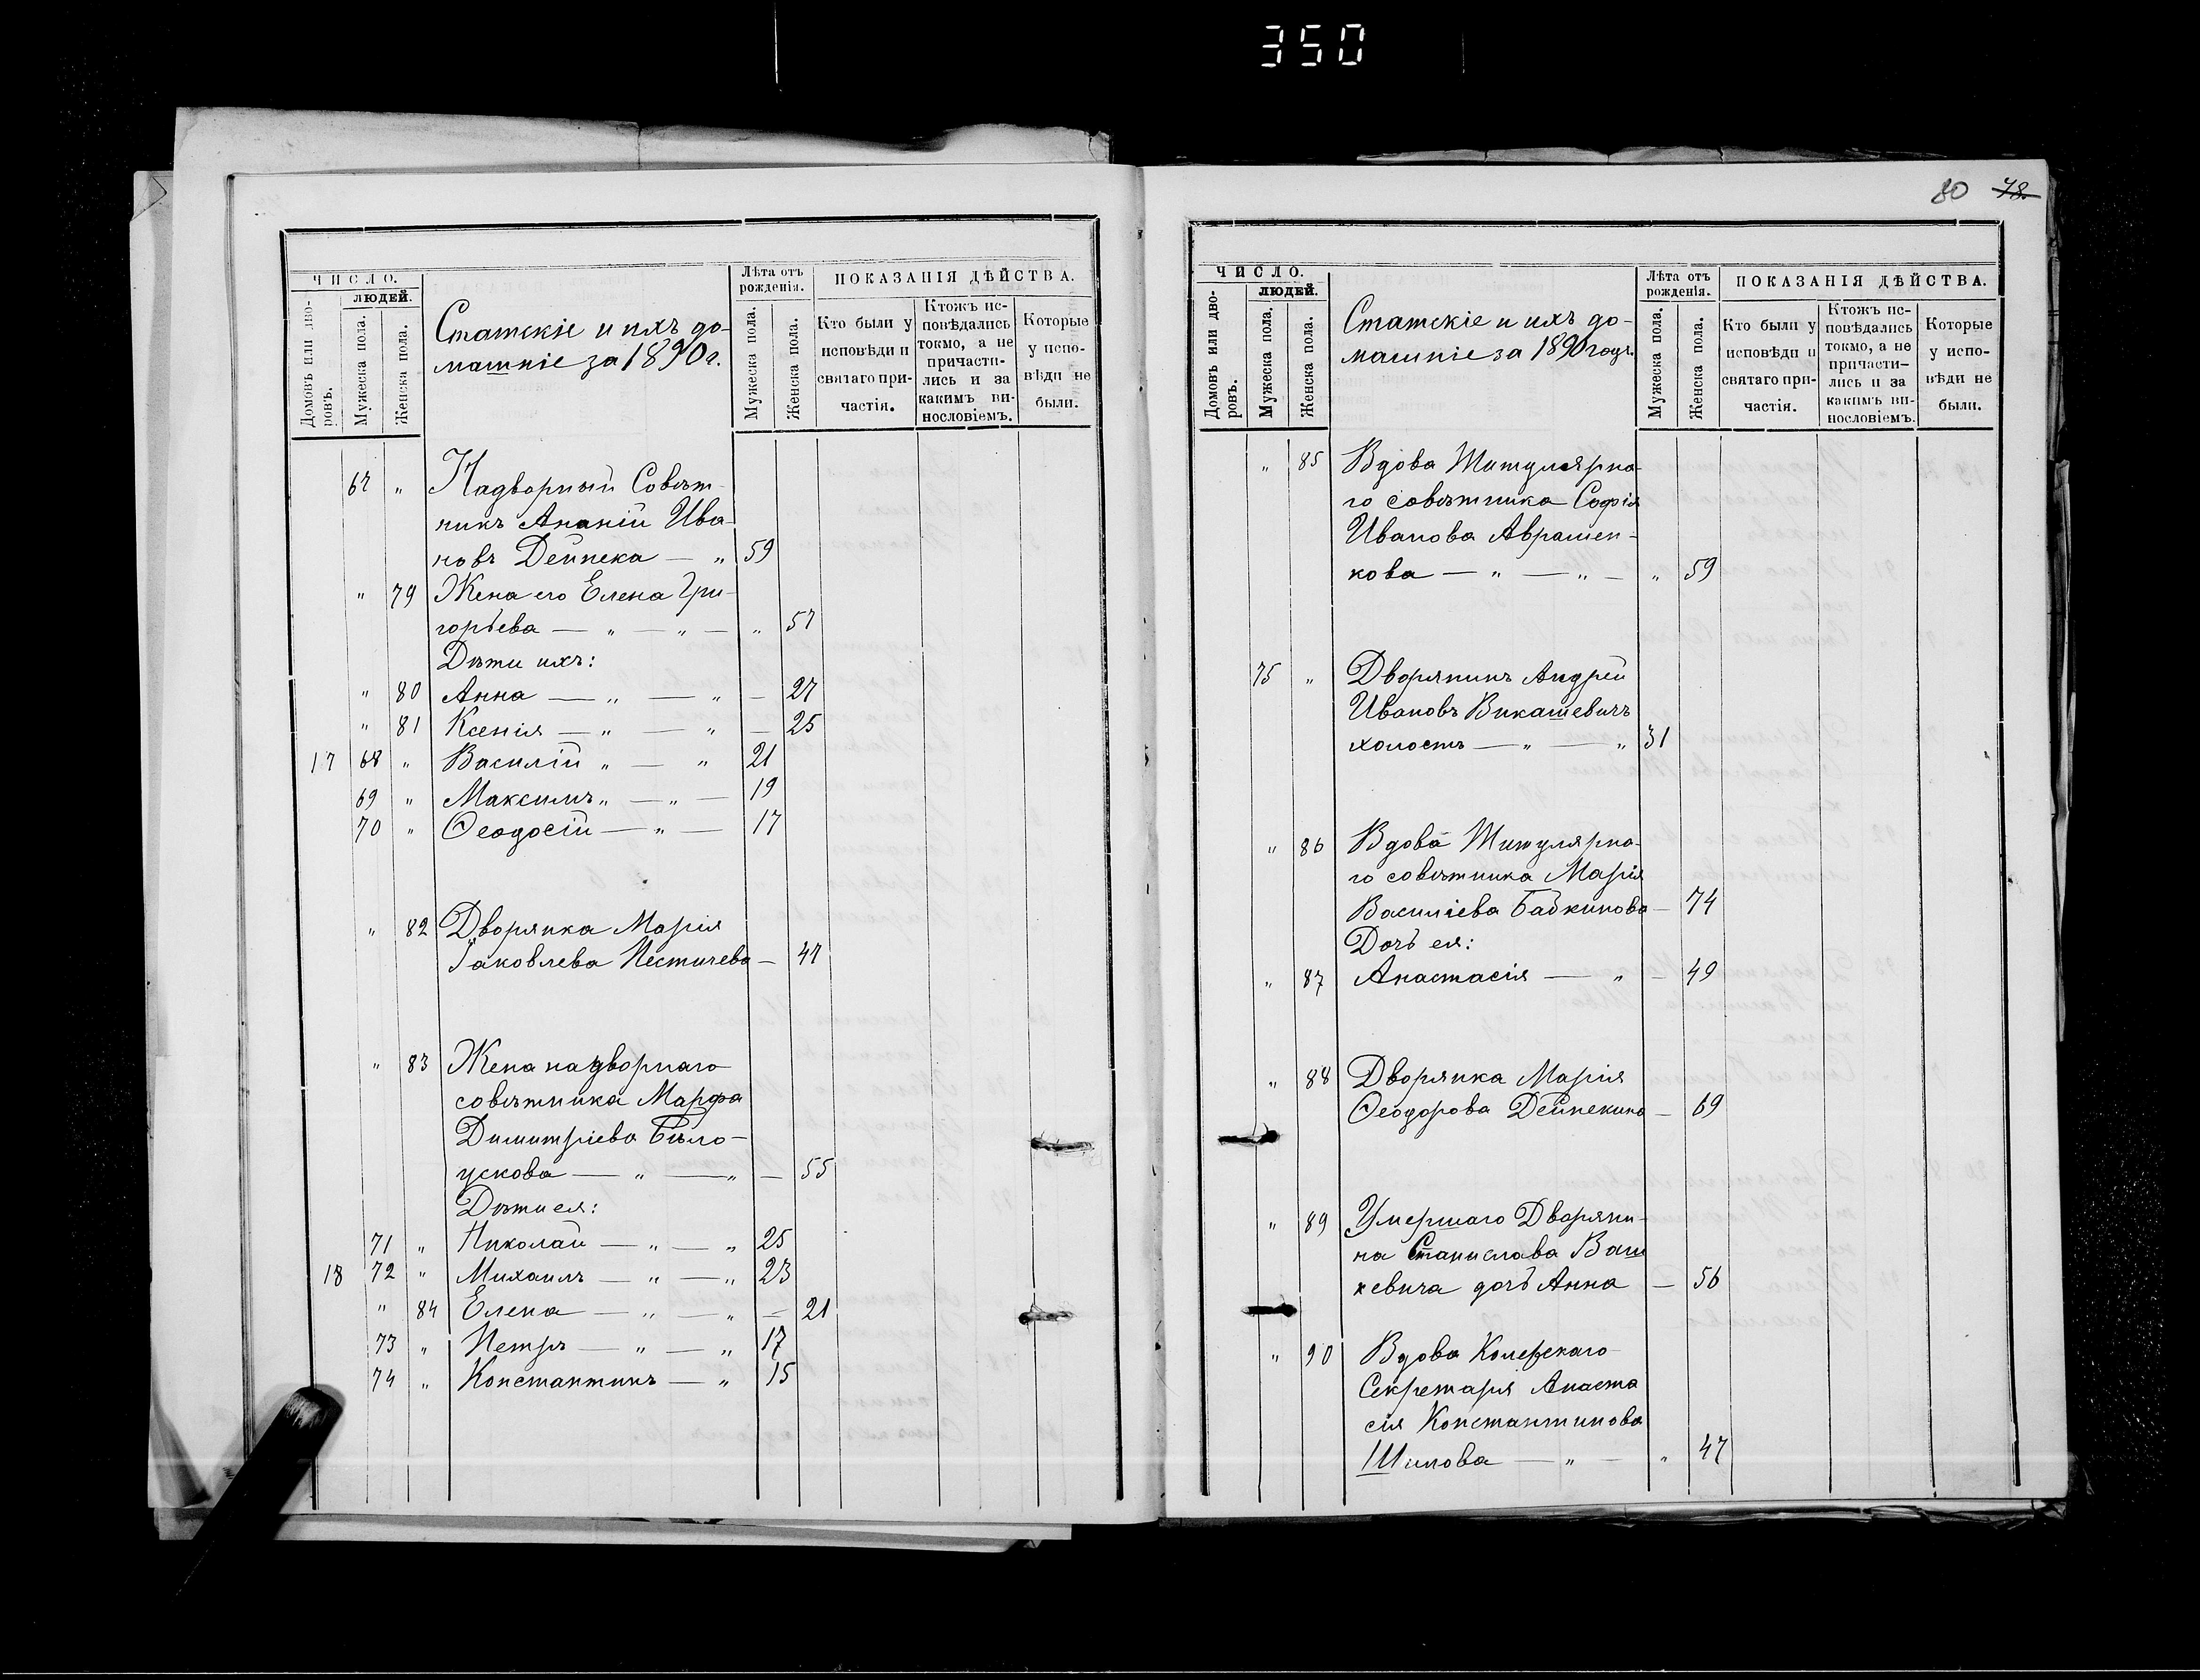 350
80 78.
ЧИСЛО.
ЛЮДЕЙ.
Домовъ или дворовъ.
Мужеска пола.
Женска пола.
Статскіе и ихъ до-
машніе за 1890 г.
Лѣта отъ рожденія.
Мужеска пола.
Женска пола.
ПОКАЗАНІЯ ДѢЙСТВА.
Кто были у исповѣди и святаго причастія.
Ктожъ исповѣдались токмо, а не причастились и за какимъ винословіемъ.
Которые у исповѣди не были.
67 " Надворный Совѣт-
никъ Ананій Ива-
новъ Дейнека — " 59
" 79 Жена его Елена Гри-
горьева — " — " — " 57
Дѣти ихъ:
" 80 Анна — " — " — 27
" 81 Ксенія — " — " — 25
17 68 " Василій " — " 21
69 " Максимъ " — " — 19
70 " Ѳеодосій — " — 17
" 82 Дворянка Марія
Іаковлева Пестичева — 47
" 83 Жена надворнаго
совѣтника Марфа
Димитріева Бѣло-
ускова — " — " — 55
Дѣти ея:
71 " Николай — " — " 25
18 72 " Михаилъ — " — " 23
" 84 Елена — " — " — 21
73 " Петръ — " — " 17
74 " Константинъ — " 15
ЧИСЛО.
ЛЮДЕЙ.
Домовъ или дворовъ.
Мужеска пола.
Женска пола.
Статскіе и ихъ до-
машніе за 1890 годъ.
Лѣта отъ рожденія.
Мужеска пола.
Женска пола.
ПОКАЗАНІЯ ДѢЙСТВА.
Кто были у исповѣди и святаго причастія.
Ктожъ исповѣдались токмо, а не причастились и за какимъ винословіемъ.
Которые у исповѣди не были.
" 85 Вдова Титулярна-
го совѣтника Софія
Иванова Аврамен-
кова — " — " — " 59
75 " Дворянинъ Андрей
Ивановъ Викашевичъ
холостъ — " — " 31
" 86 Вдова Титулярна-
го совѣтника Марія
Василіева Бабкинова — 74
Дочь ея:
" 87 Анастасія — " — 49
" 88 Дворянка Марія
Ѳеодорова Дейнекина — 69
" 89 Умершаго Дворяни-
на Станислава Ваш
кевича дочь Анна — 56
" 90 Вдова Колежскаго
Секретаря Анаста
сія Константинова
Шилова — " — " 47